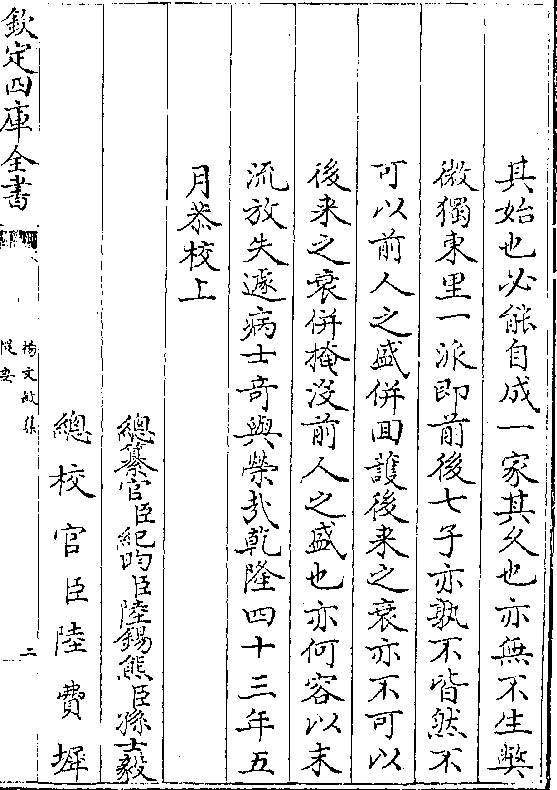 其始也必能自成一家其久也亦無不生獘
微獨東里一派即前後七子亦孰不皆然不
可以前人之盛併回護後来之衰亦不可以
後来之衰併掩沒前人之盛也亦何容以末
流放失遽病士奇與榮哉乾隆四十三年五
月恭校上
總纂官臣紀昀臣陸錫熊臣孫士毅
總校官臣陸費墀
欽定四庫全書
楊文敏集
提要
二